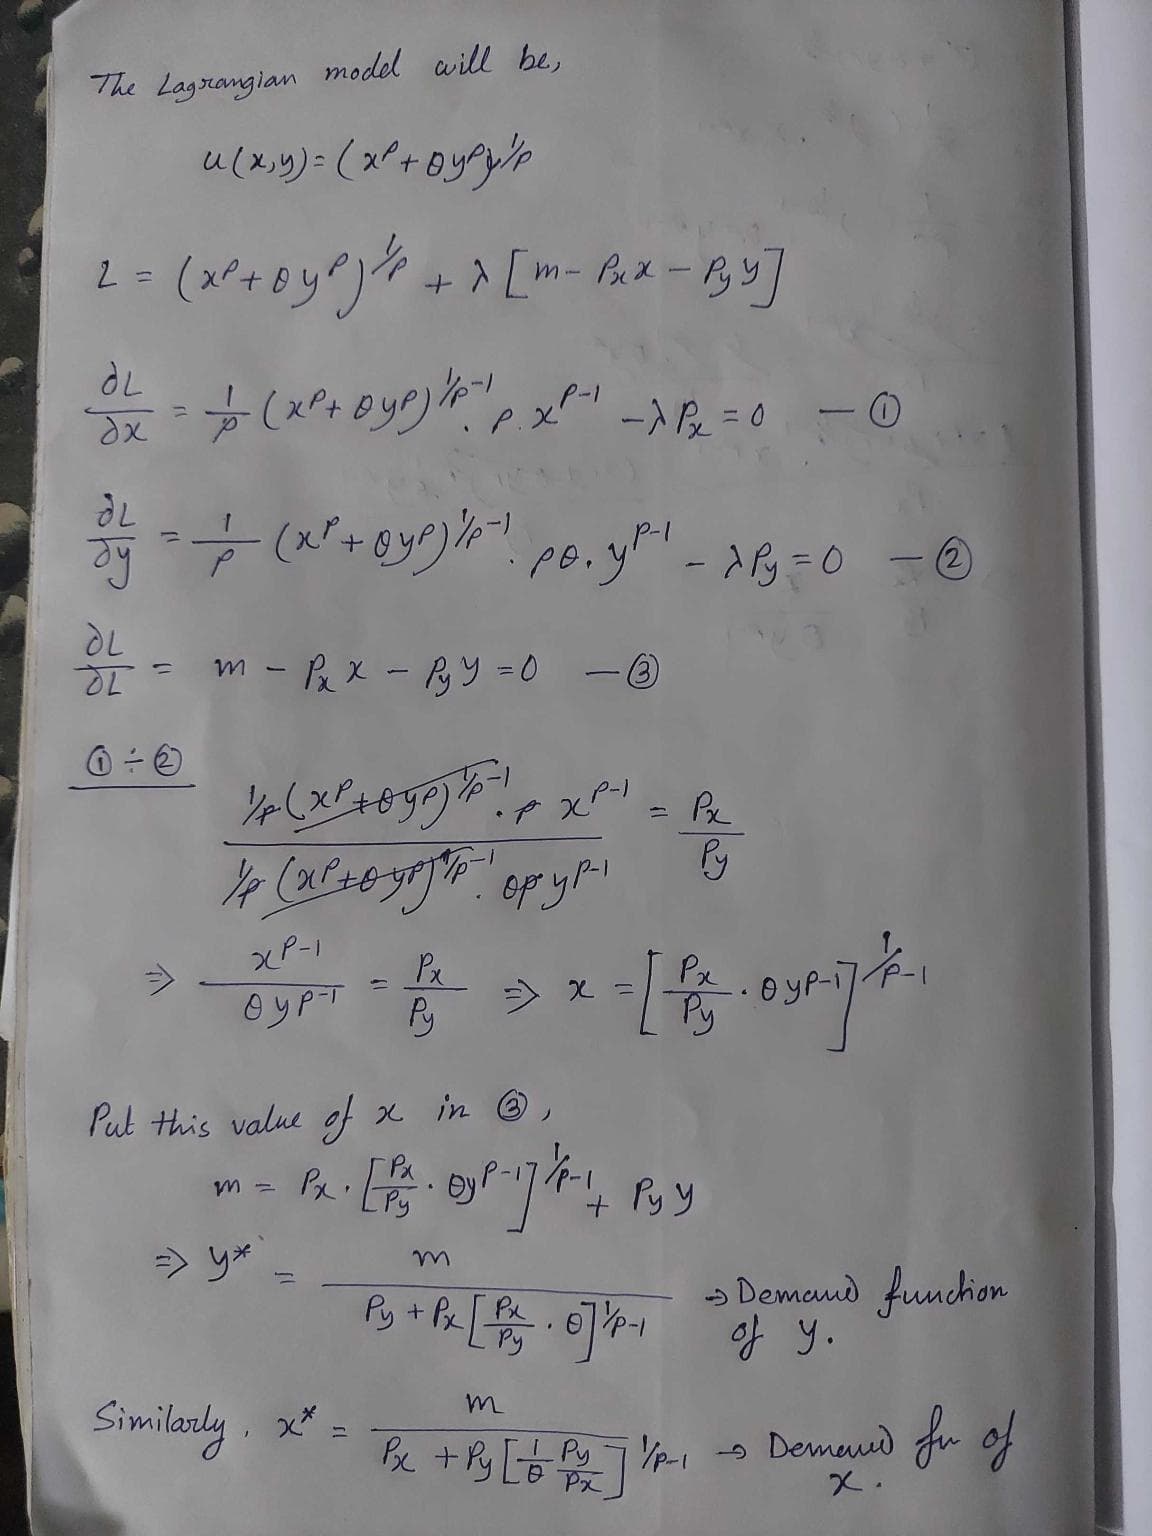 The Lagrangian model will be,
u(x,y) = (x^ρ + θy^ρ)^1/ρ
L = (x^ρ + θy^ρ)^1/ρ + λ[m - Pₓx - P_y y]
∂L/∂x = 1/ρ (x^ρ + θy^ρ)^1/ρ-1 . ρ. x^ρ-1 - λPₓ = 0 — ①
∂L/∂y = 1/ρ (x^ρ + θy^ρ)^1/ρ-1 . ρθ. y^ρ-1 - λP_y = 0 — ②
∂L/∂L = m - Pₓx - P_y y = 0 — ③
① ÷ ②
1/ρ (x^ρ + θy^ρ)^1/ρ-1 . ρ x^ρ-1 / 1/ρ (x^ρ + θy^ρ)^1/ρ-1 . θρ y^ρ-1 = Pₓ/P_y
⇒ x^ρ-1 / θy^ρ-1 = Pₓ/P_y ⇒ x = [Pₓ/P_y . θy^ρ-1]^1/ρ-1
Put this value of x in ③,
m = Pₓ. [Pₓ/P_y . θy^ρ-1]^1/ρ-1 + P_y y
⇒ y* = m / P_y + Pₓ[Pₓ/P_y . θ]^1/ρ-1 → Demand function
of y.
Similarly, x* = m / Pₓ + P_y[1/θ P_y/Pₓ]^1/ρ-1 → Demand fn of
x.